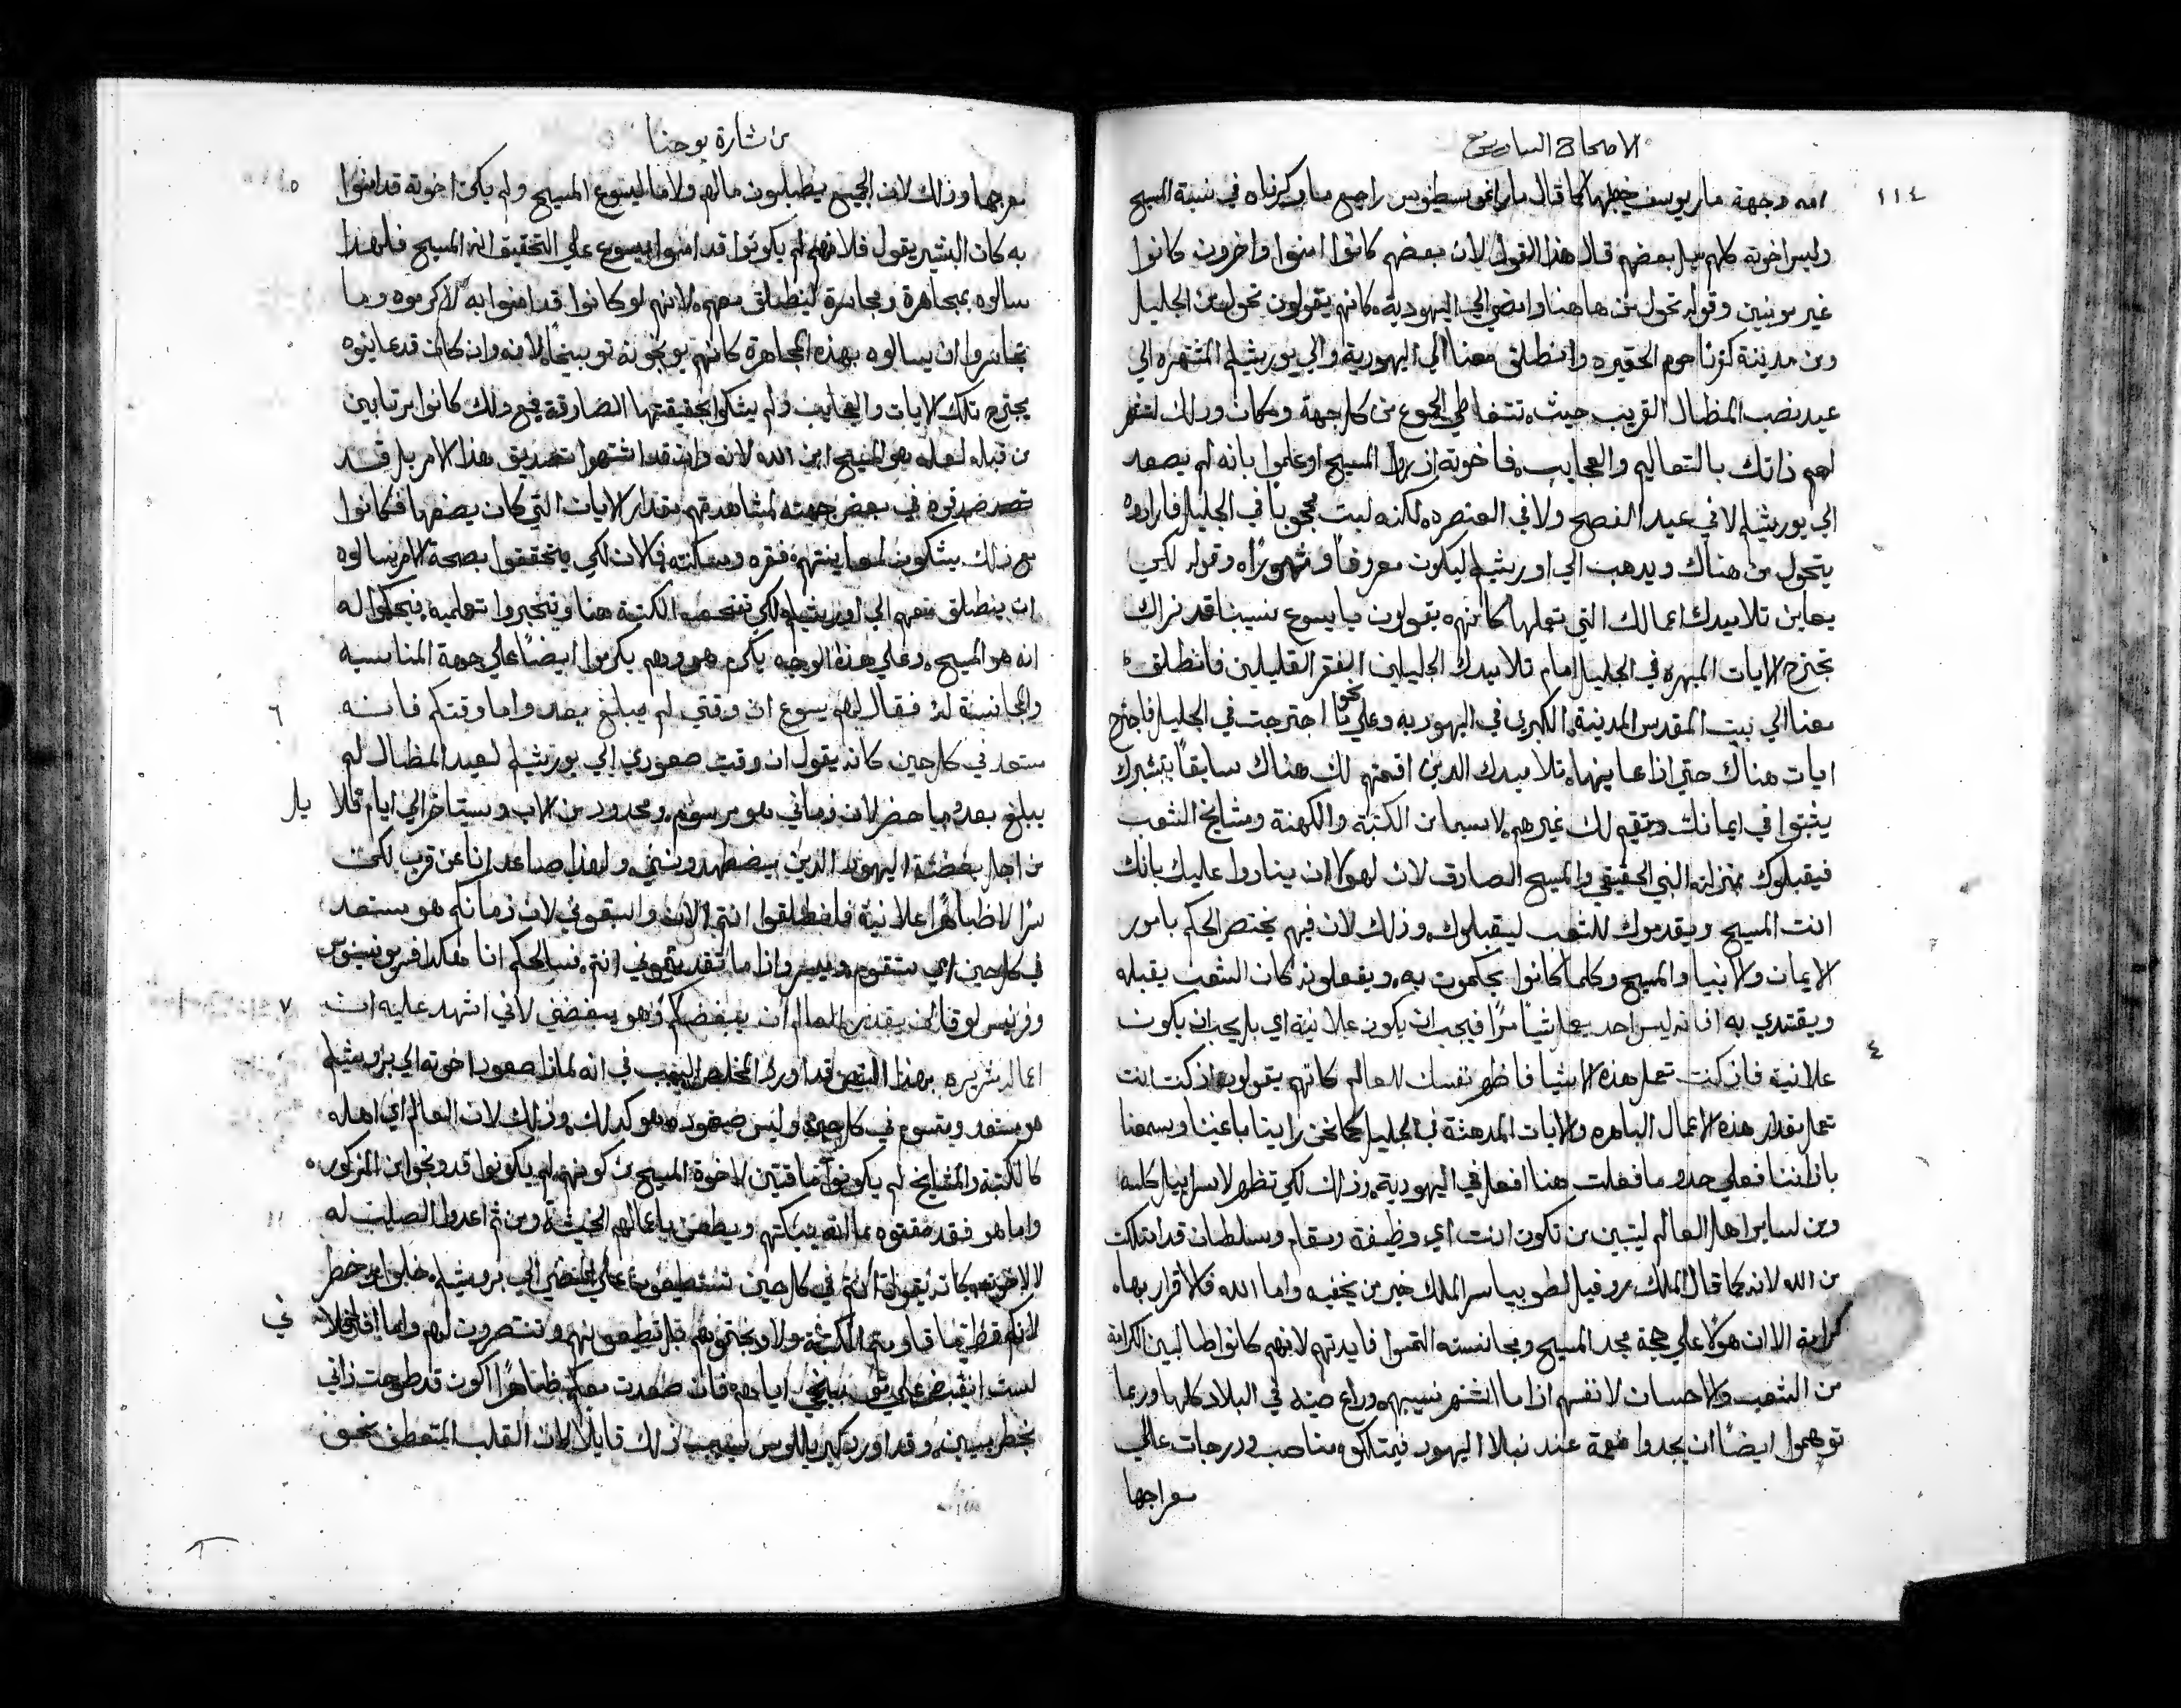 الاصحاح السابع
١١٤
امه وجهة مار يوسف خطيبها كما قال مار اغوسطينوس راجع ما ذكرناه في نسبة المسيح
وليس اخوته كلهم بل بعضهم قال هذا القول لان بعضهم كانوا امنوا واخرون كانوا
غير مومنين وقوله تحول من هاهنا وامضي الي اليهودية كانهم يقولون تحول من الجليل
ومن مدينة كفرناحوم الحقيره وانطلق معنا الي اليهودية والي يورشليم المشتهره الي
عيد نصب المظال القريب حيث تتقاطر الجموع من كل جهة ومكان وذلك لتظهر
لهم ذاتك بالتعاليم والعجايب فاخوته اذ راوا المسيح وعلموا بانه لم يصعد
الي يورشليم لا في عيد الفصح ولا في العنصره لكنه لبث محجوبا في الجليل فارادوه
يتحول من هناك ويذهب الي اورشليم ليكون معروفا ومشهورا وقوله لكي
يعاين تلاميدك اعمالك التي تعملها كانهم يقولون يا يسوع نسيبنا قد نراك
تجترح الايات المبهره في الجليل امام تلاميدك الجليليين الفقر القليلين فانطلق
معنا الي بيت المقدس المدينة الكبري في اليهوديه وعلي نحو ما اجترحت في الجليل فاجترح
ايات هناك حتي اذا عاينها تلاميدك الدين اقمتهم لك هناك سابقا بتبشيرك
يثبتوا في ايمانك وتقيم لك غيرهم لاسيما من الكتبة والكهنة ومشايخ الشعب
فيقبلوك بمنزلة النبي الحقيقي والمسيح الصادق لان لهولا ان ينادوا عليك بانك
انت المسيح ويقدموك للشعب ليقبلوك وذلك لان فيهم يختص الحكم بامور
الايمان والانبيا والمسيح وكلما كانوا يحكمون به ويفعلونه كان الشعب يقبله
ويقتدي به اذ انه ليس احد يعمل شيا سرا فيجب ان يكون علانية اي بل يجب ان يكون
٤
علانية فان كنت تعمل هذه الاشيا فاظهر نفسك للعالم كانهم يقولون اذ كنت انت
تعمل بقدار هذه الاعمال الباهره والايات المدهشة في الجليل كما نحن راينا باعيننا وسمعنا
باذاننا فعلي حدو ما فعلت هنا افعل في اليهودية وذلك لكي تظهر لاسراييل كله
ومن لساير اهل العالم ليتبين من تكون انت اي وظيفة ومقام وسلطان قد امتلكت
من الله لانه كما قال الملاك روفيل لطوبيا سر الملك خير من يخفيه واما الله فالاقرار بها
كرامة الا ان هولا علي حجة مجد المسيح ومجانسته التمسوا فايدتهم لانهم كانوا طالبين الكرامة
من الشعب والاحسان لانفسهم اذا ما اشتهر نسيبهم وذاع صيته في البلاد كلها وربما
توهموا ايضا ان يجدوا نعمة عند نبلا اليهود فيمتلكوا مناصب ودرجات عالي
معراجها
من بشارة يوحنا
معرجها وذلك لان الجميع يطلبون ما لهم ولا ما ليسوع المسيح ولم يكن اخوته قد امنوا
٥
به كان البشير يقول فلانهم لم يكونوا قد امنوا بيسوع علي التحقيق انه المسيح فلهذا
سالوه بمجاهرة ومجاسرة لينطلق معهم لانهم لو كانوا قد امنوا به لاكرموه وما
تجاسروا ان يسالوه بهذه المجاهرة كانهم يوبخونه توبيخا لانه وان كان قد عاينوه
يجترح تلك الايات والعجايب ولم يشكوا بحقيقتها الصادقة فمع ذلك كانوا مرتابين
من قبله لعله هو المسيح ابن الله لانه وان قد اشتهوا تصديق هذا الامر بل قد
صدقوه في بعض جهته لمشاهدتهم مقدار الايات التي كان يصنعها فكانوا
مع ذلك يشكون لمعاينتهم فقره ومسكنته فلان لكي يتحققوا بصحة الامر سالوه
ان ينطلق معهم الي اورشليم لكي تفحصه الكتبة هنا وتختبروا تعلميه فيحكموا له
انه هو المسيح وعلي هذه الوجه يكرم هو وهم يكرموا ايضا علي جهة المناسبه
والمجانسة له فقال لهم يسوع ان وقتي لم يبلغ بعد واما وقتكم فانه
٦
مستعد في كل حين كانه يقول ان وقت صعودي الي يورشليم لعيد المظال لم
يبلغ بعد ما حضر لان زماني هو مرسوم ومحدود من الاب وسيتاخر الي ايام قلايل
من اجل بغضة اليهود الذين يضطهدونني ولهذا صاعد انا عن قرب لكن
سرا لا ظاهرا علانية فانطلقوا انتم الان واسبقوني لان زمانكم هو مستعد
في كل حين اي ستقوم وتيسر واذا ما تقدمتموني انتم فسالحقكم انا هكذا فريونسيوس
وفرنسيس لوقا لن يقدر العالم ان يبغضكم وهو يبغضني لاني اشهد عليه ان
٧
اعماله شريره بهذا النص قد اورد المخلص السبب في انه لماذا صعود اخوته الي يروشليم
هو مستعد ومتسوم في كل حين وليس صعوده هو كدلك وذلك لان العالم اي اهله
كالكتبة والمشايخ لم يكونوا ماقتين لاخوة المسيح من كونهم لم يكونوا قد وبخوا من المذكور
واما هو فقد مقتوه بما انه يبكتهم ويطعن باعمالهم الخبيثة ومن ثم اعدوا الصليب له
لا لاخوته كانه يقول انتم في كل حين تستطيعون علي المضي الي يروشليم خلوا من خطر
لانكم قط ما قاومتم الكتبة ولا وبختوهم بل تطيعونهم وتنتصرون لهم واما انا فلاني
لست انقبض علي توبيخي اياهم فان صعدت معكم ظاهرا اكون قد طوحت ذاتي
بخطر مبين وقد اورد كيرياللوس لسبب ذلك قايلا لان القلب المتعطف نحو